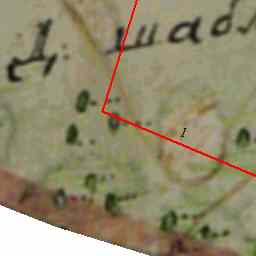 Д. шабл
1